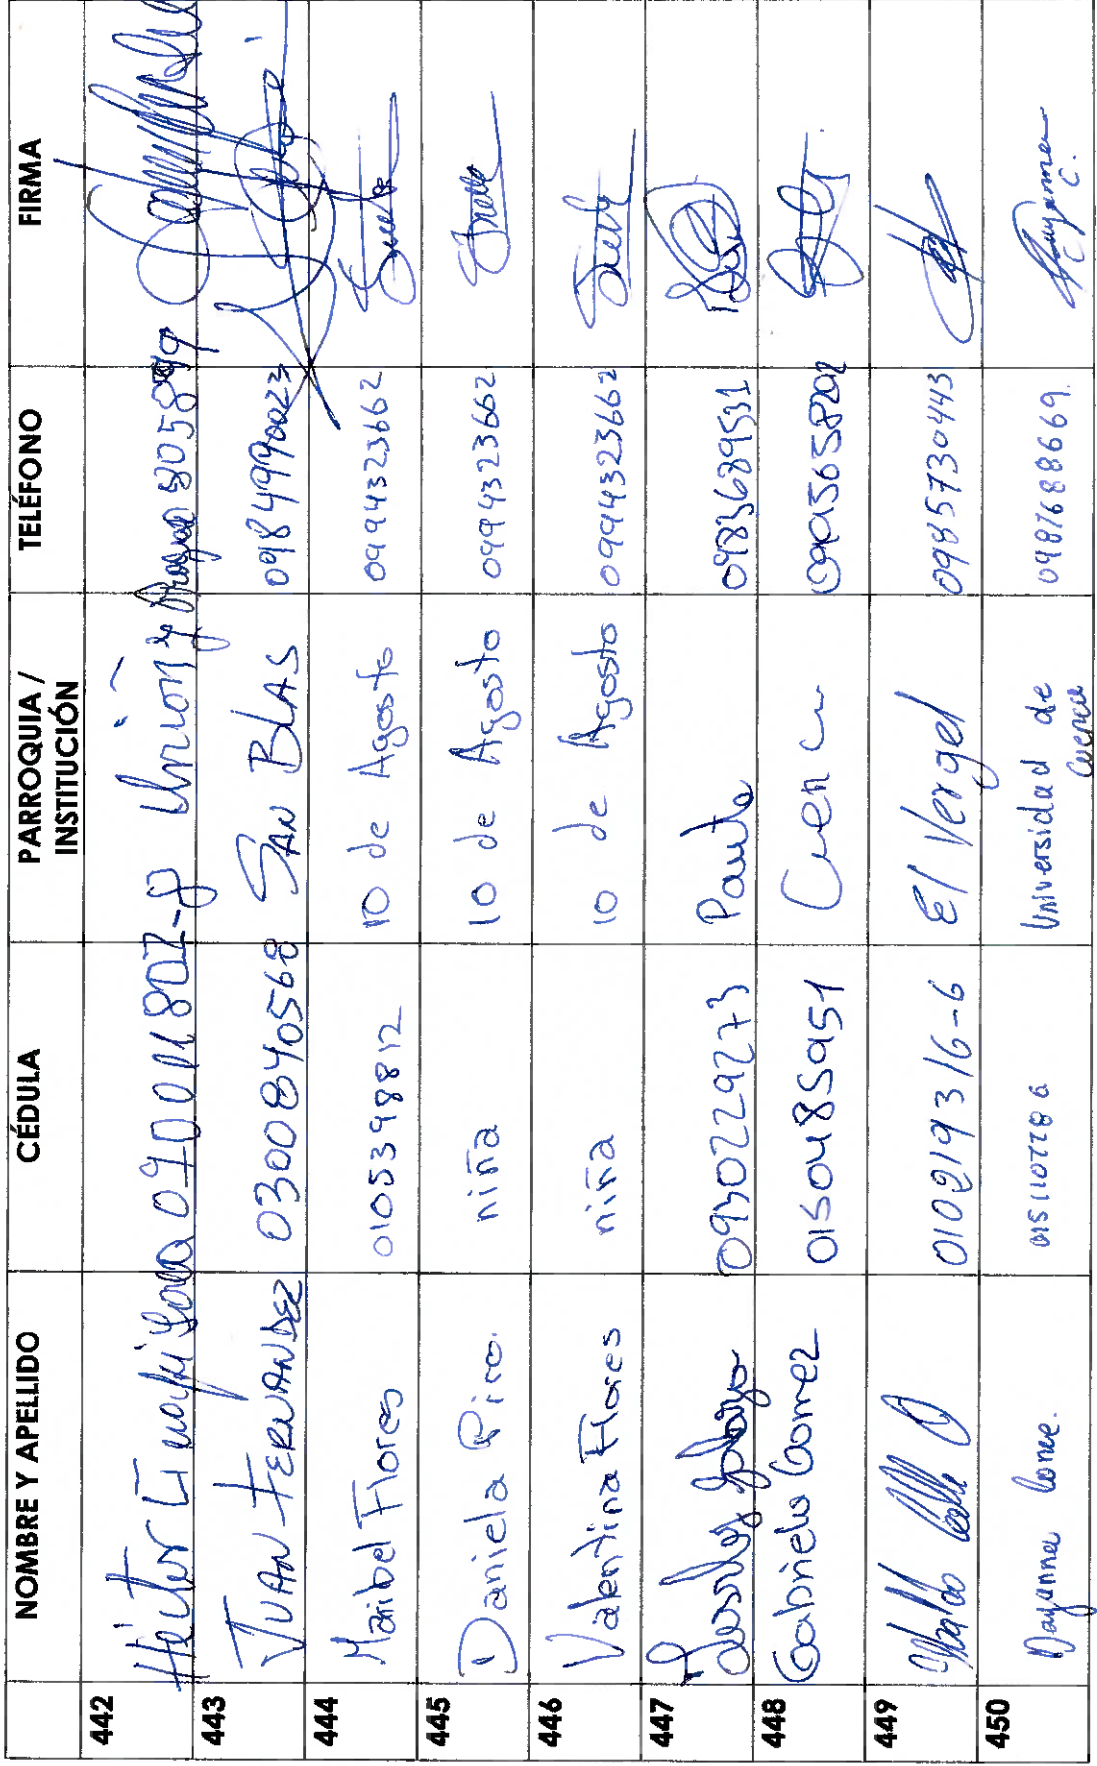 NOMBRE Y APELLIDO CÉDULA PARROQUIA / INSTITUCIÓN TELÉFONO FIRMA
442 Héctor Unión y
443 JUAN FERNÁNDEZ 0300840568 SAN BLAS 0984990023
444 Maribel Flores 0105398812 10 de Agosto 0994323662
445 Daniela Pico. niña 10 de Agosto 0994323662
446 Valentina Flores niña 10 de Agosto 0994323662
447 0930229273 Paute 0983689531
448 Gabriela Gomez 0150485951 Cuenca
449 010219316-6 El Vergel 0985730443
450 Dayanna 0151107286 Universidad de Cuenca 0987688669.